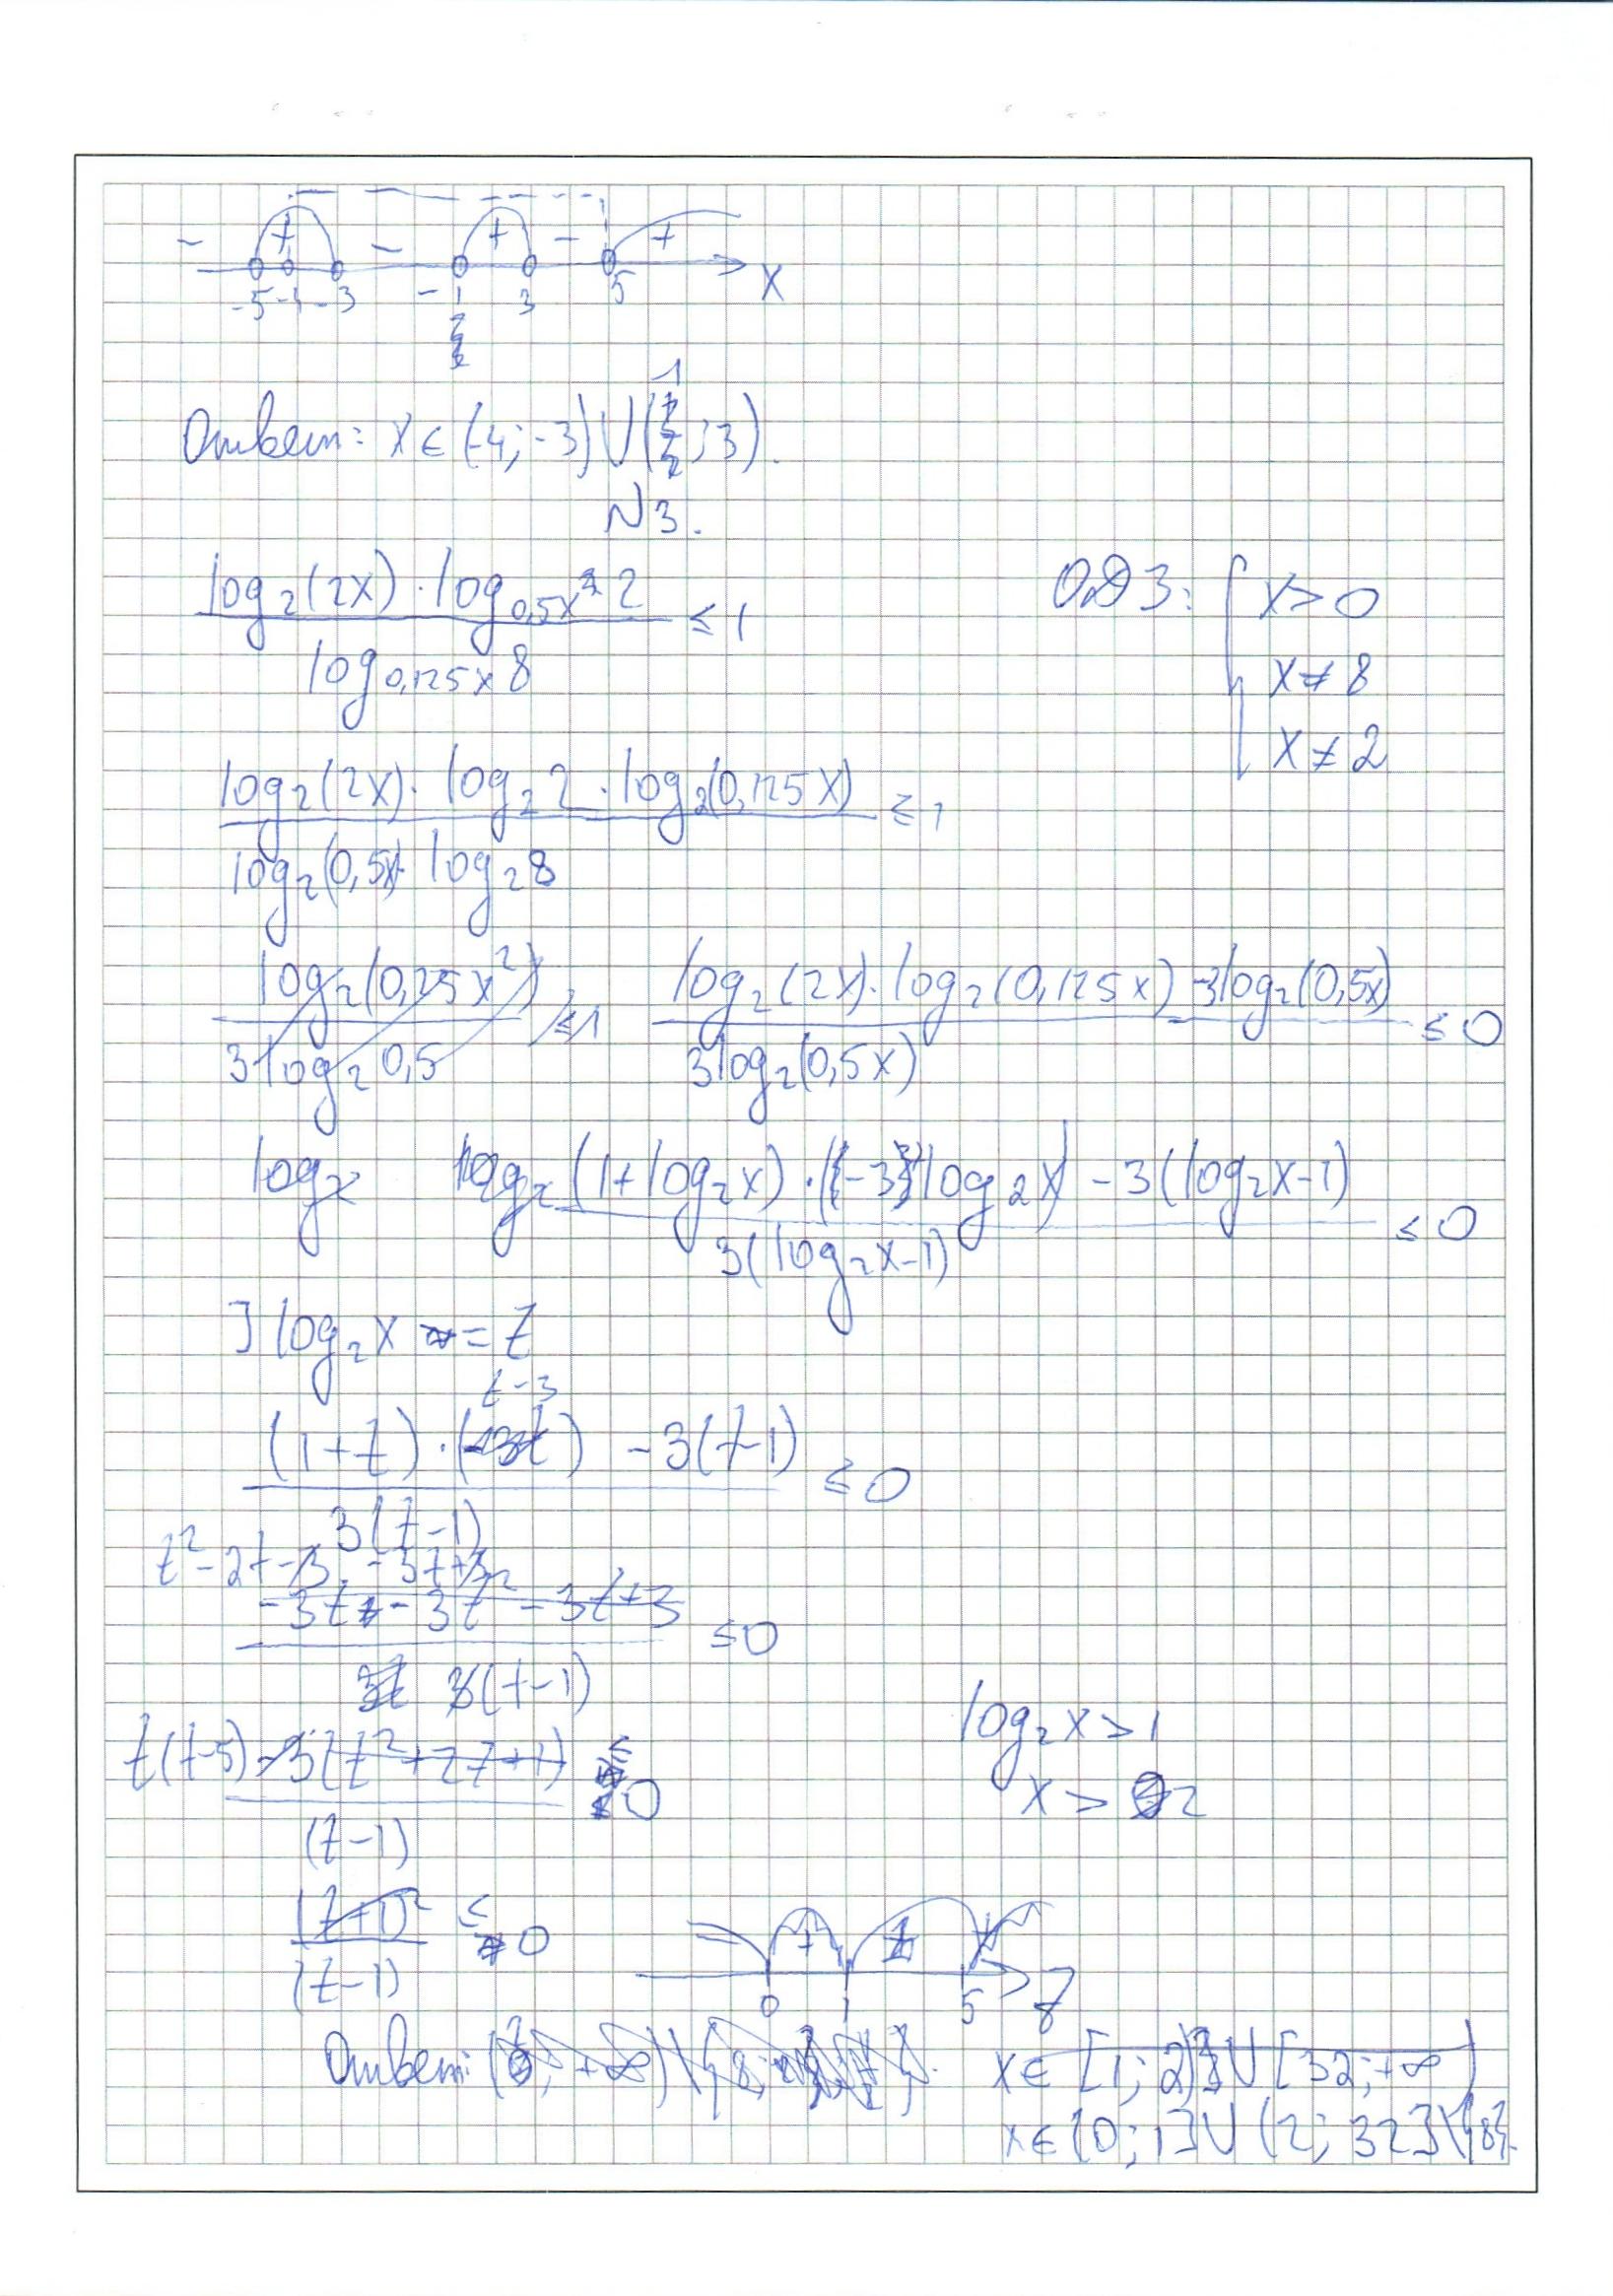 - + - + - +
-5 -4 -3 -1 3 5 x
Ответ: x ∈ (-4; -3) ∪ (-1; 3).
N3.
log₂(2x) · log₀,₅ₓ 2 / log₀,₁₂₅ₓ 8 ≤ 1
ОДЗ: { x > 0
x ≠ 8
x ≠ 2
log₂(2x) · log₂ 2 · log₂(0,125x) / log₂(0,5x) · log₂ 8 ≤ 1
log₂(0,25x²) / 3 log₂ 0,5 ≤ 1
log₂(2x) · log₂(0,125x) - 3 log₂(0,5x) / 3 log₂(0,5x) ≤ 0
log₂ (1 + log₂x) · (-3 + log₂x) - 3(log₂x - 1) / 3(log₂x - 1) ≤ 0
] log₂x = t
(1 + t) · (t - 3) - 3(t - 1) / 3(t - 1) ≤ 0
t² - 2t - 3 - 3t + 3
-3t - 3t² - 3t + 3 / 3(t - 1) ≤ 0
t(t - 5) - 3(t² + 2t + 1) / (t - 1) ≤ 0
log₂x > 1
x > 2
(t + 1)² / (t - 1) ≤ 0
0 1 5 t
Ответ: x ∈ [1; 2) ∪ [32; +∞)
x ∈ (0; 1] ∪ (2; 32] \ {8}.